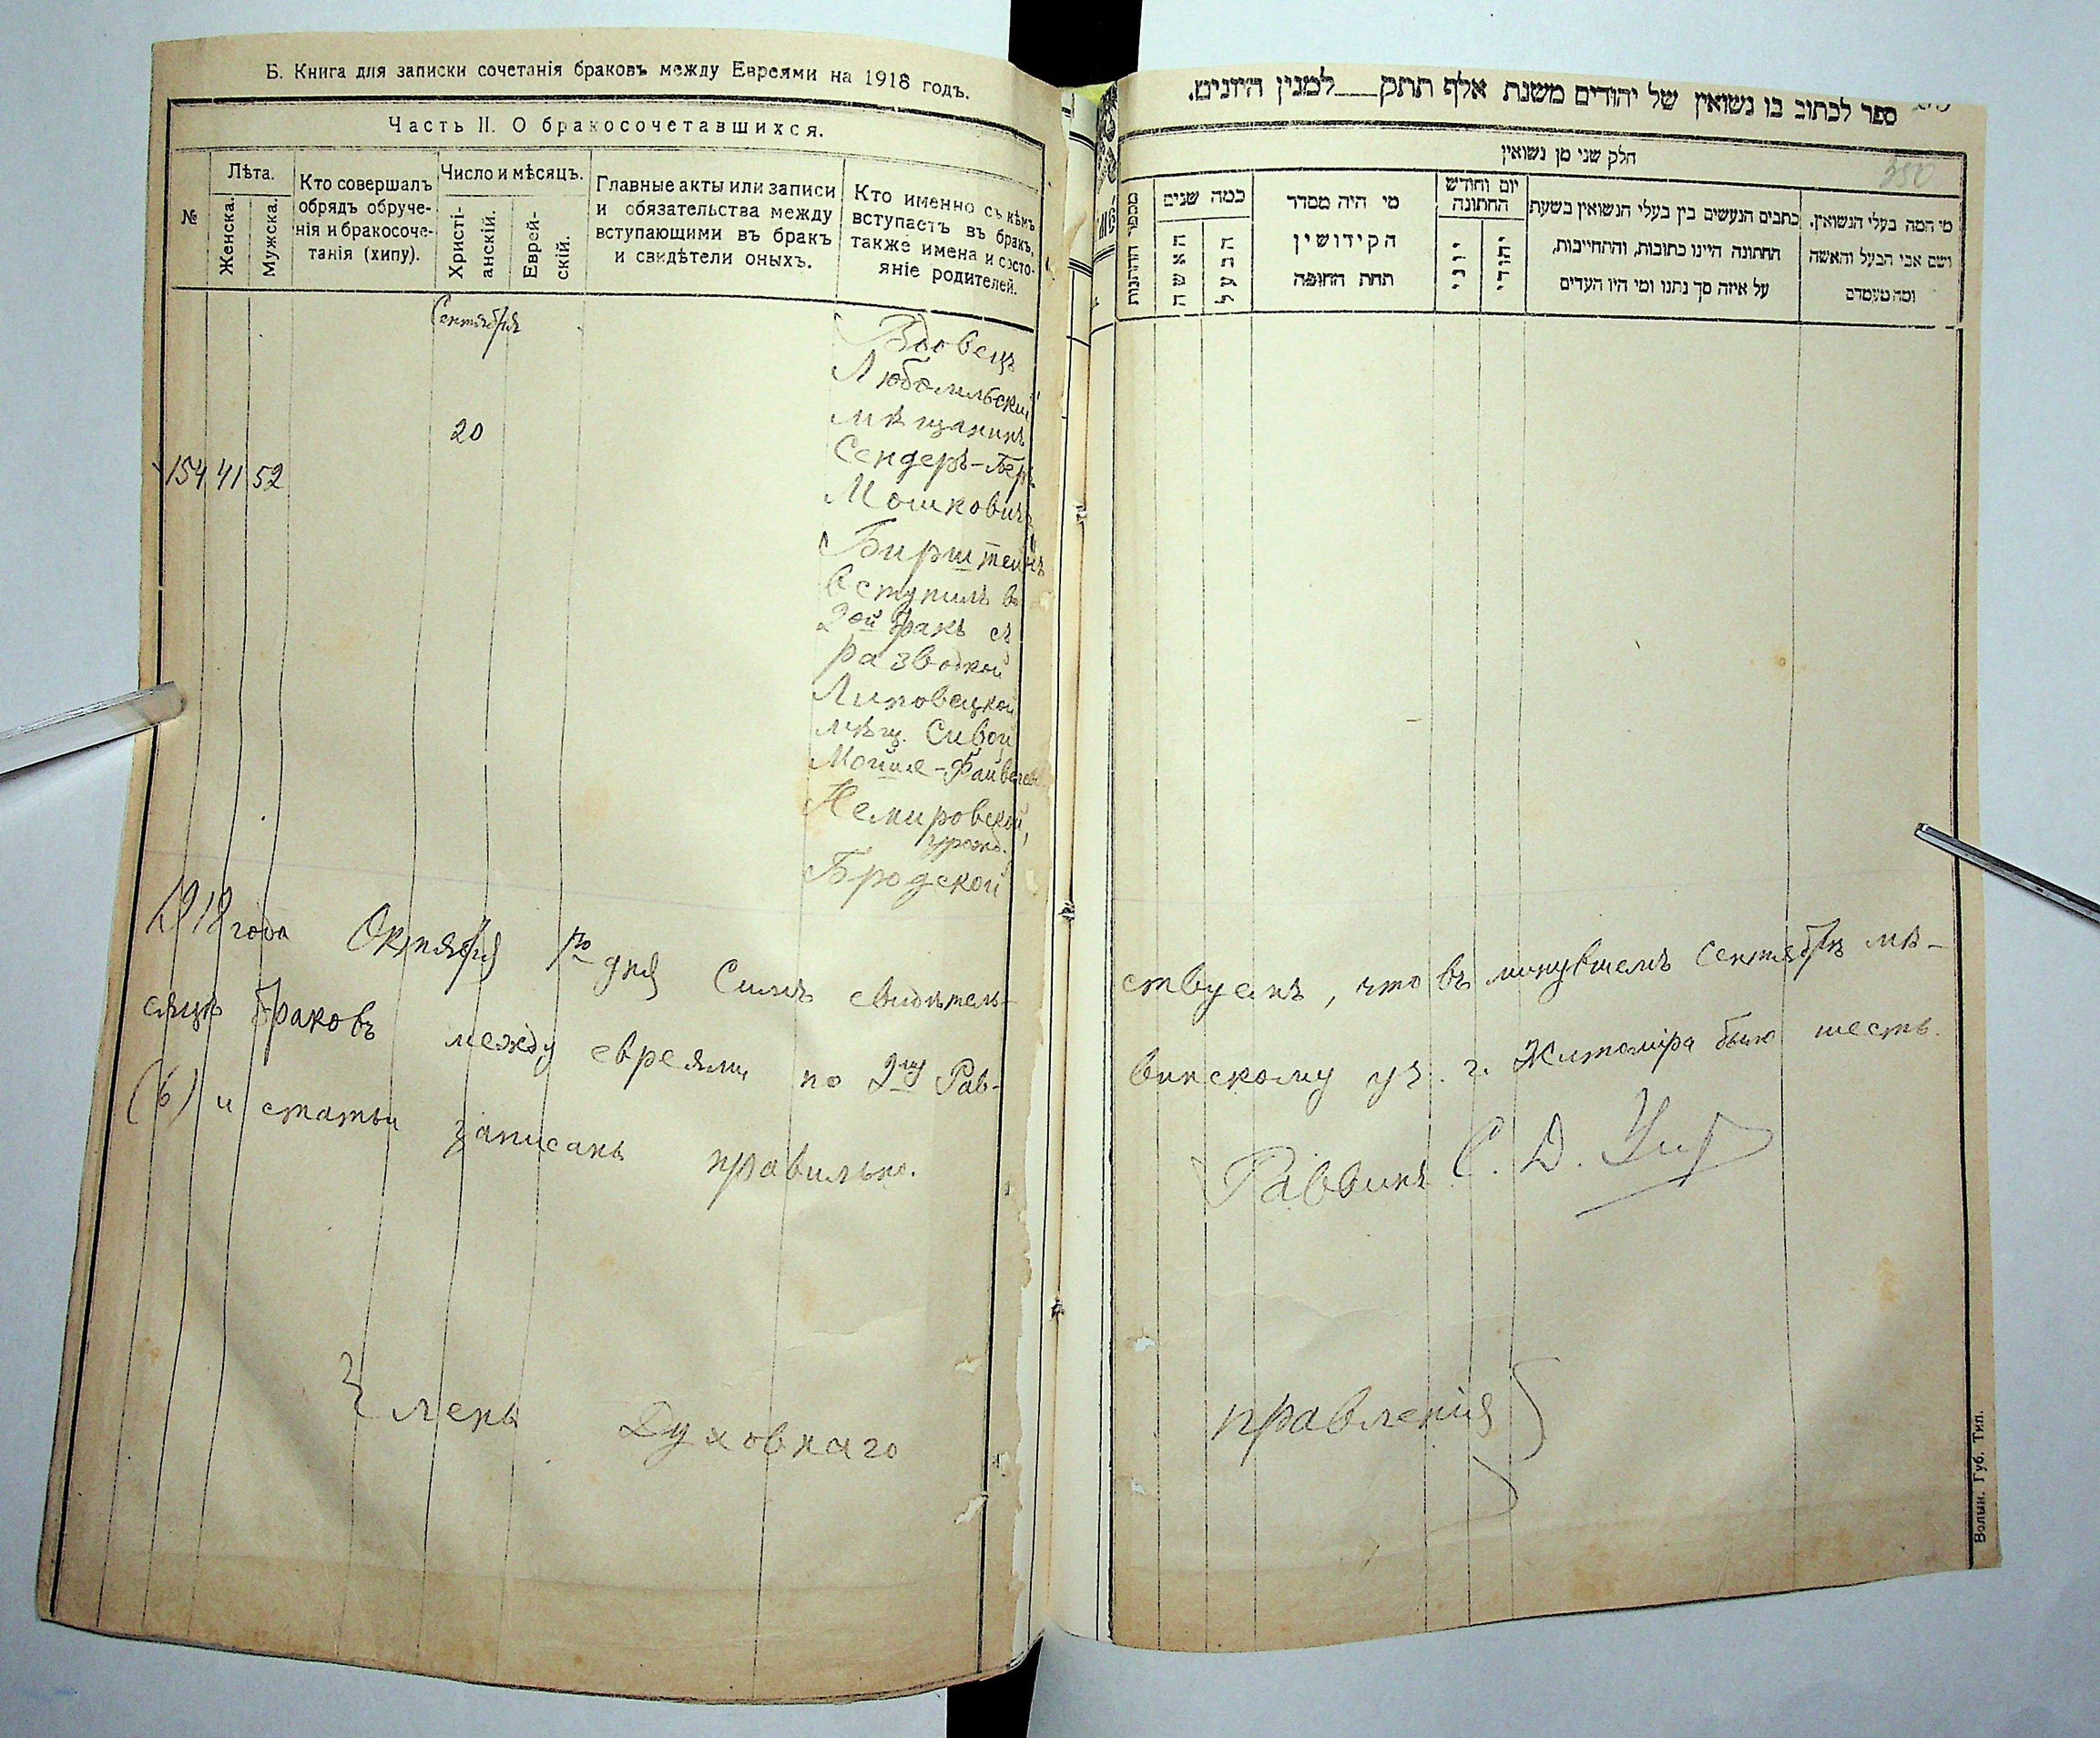 Б. Книга для записки сочетанія браковъ между Евреями на 1918 годъ.
Часть II. О бракосочетавшихся.
№
Лѣта.
Женска.
Мужска.
Кто совершалъ
обрядъ обруче-
нія и бракосоче-
танія (хипу).
Число и мѣсяцъ.
Христі-
анскій.
Еврей-
скій.
Главные акты или записи
и обязательства между
вступающими въ бракъ
и свидѣтели оныхъ.
Кто именно съ кѣмъ
вступаетъ въ бракъ,
также имена и состо-
яніе родителей.
Сентября
20
154 41 52
Вдовецъ
Любомльскій
мѣщанинъ
Сендеръ-Беръ
Мошковичъ
Бирштейнъ
вступилъ во
2ой бракъ съ
разводкой
Липовецкой
мѣщ. Сивой
Мошке-Файвелев
Немировской,
урожд.
Бродской
1918 года Октября 1го дня Симъ свидѣтель-
сяцѣ браковъ между евреями по 2му Рав-
(6) и статьи записаны правильно.
Членъ Духовнаго
ספר לכתוב בו נשואין של יהודים משנת אלף תתק___למנין היונים.
350
חלק שני מן נשואין
כמה שנים
האשה
הבעל
מי היה מסדר
הקידושין
תחת החופה
יום וחודש
החתונה
יוני
יהודי
כתבים הנעשים בין בעלי הנשואין בשעת
החתונה היינו כתובות, והתחייבות,
על איזה סך נתנו ומי היו העדים
מי המה בעלי הנשואין.
ושם אבי הבעל והאשה
ומה מעמדם
ствуемъ, что въ минувшемъ Сентябрѣ мѣ-
винскому уч. г. Житоміра было шесть
Раввинъ С. Д.
правленія
Волын. Губ. Тип.